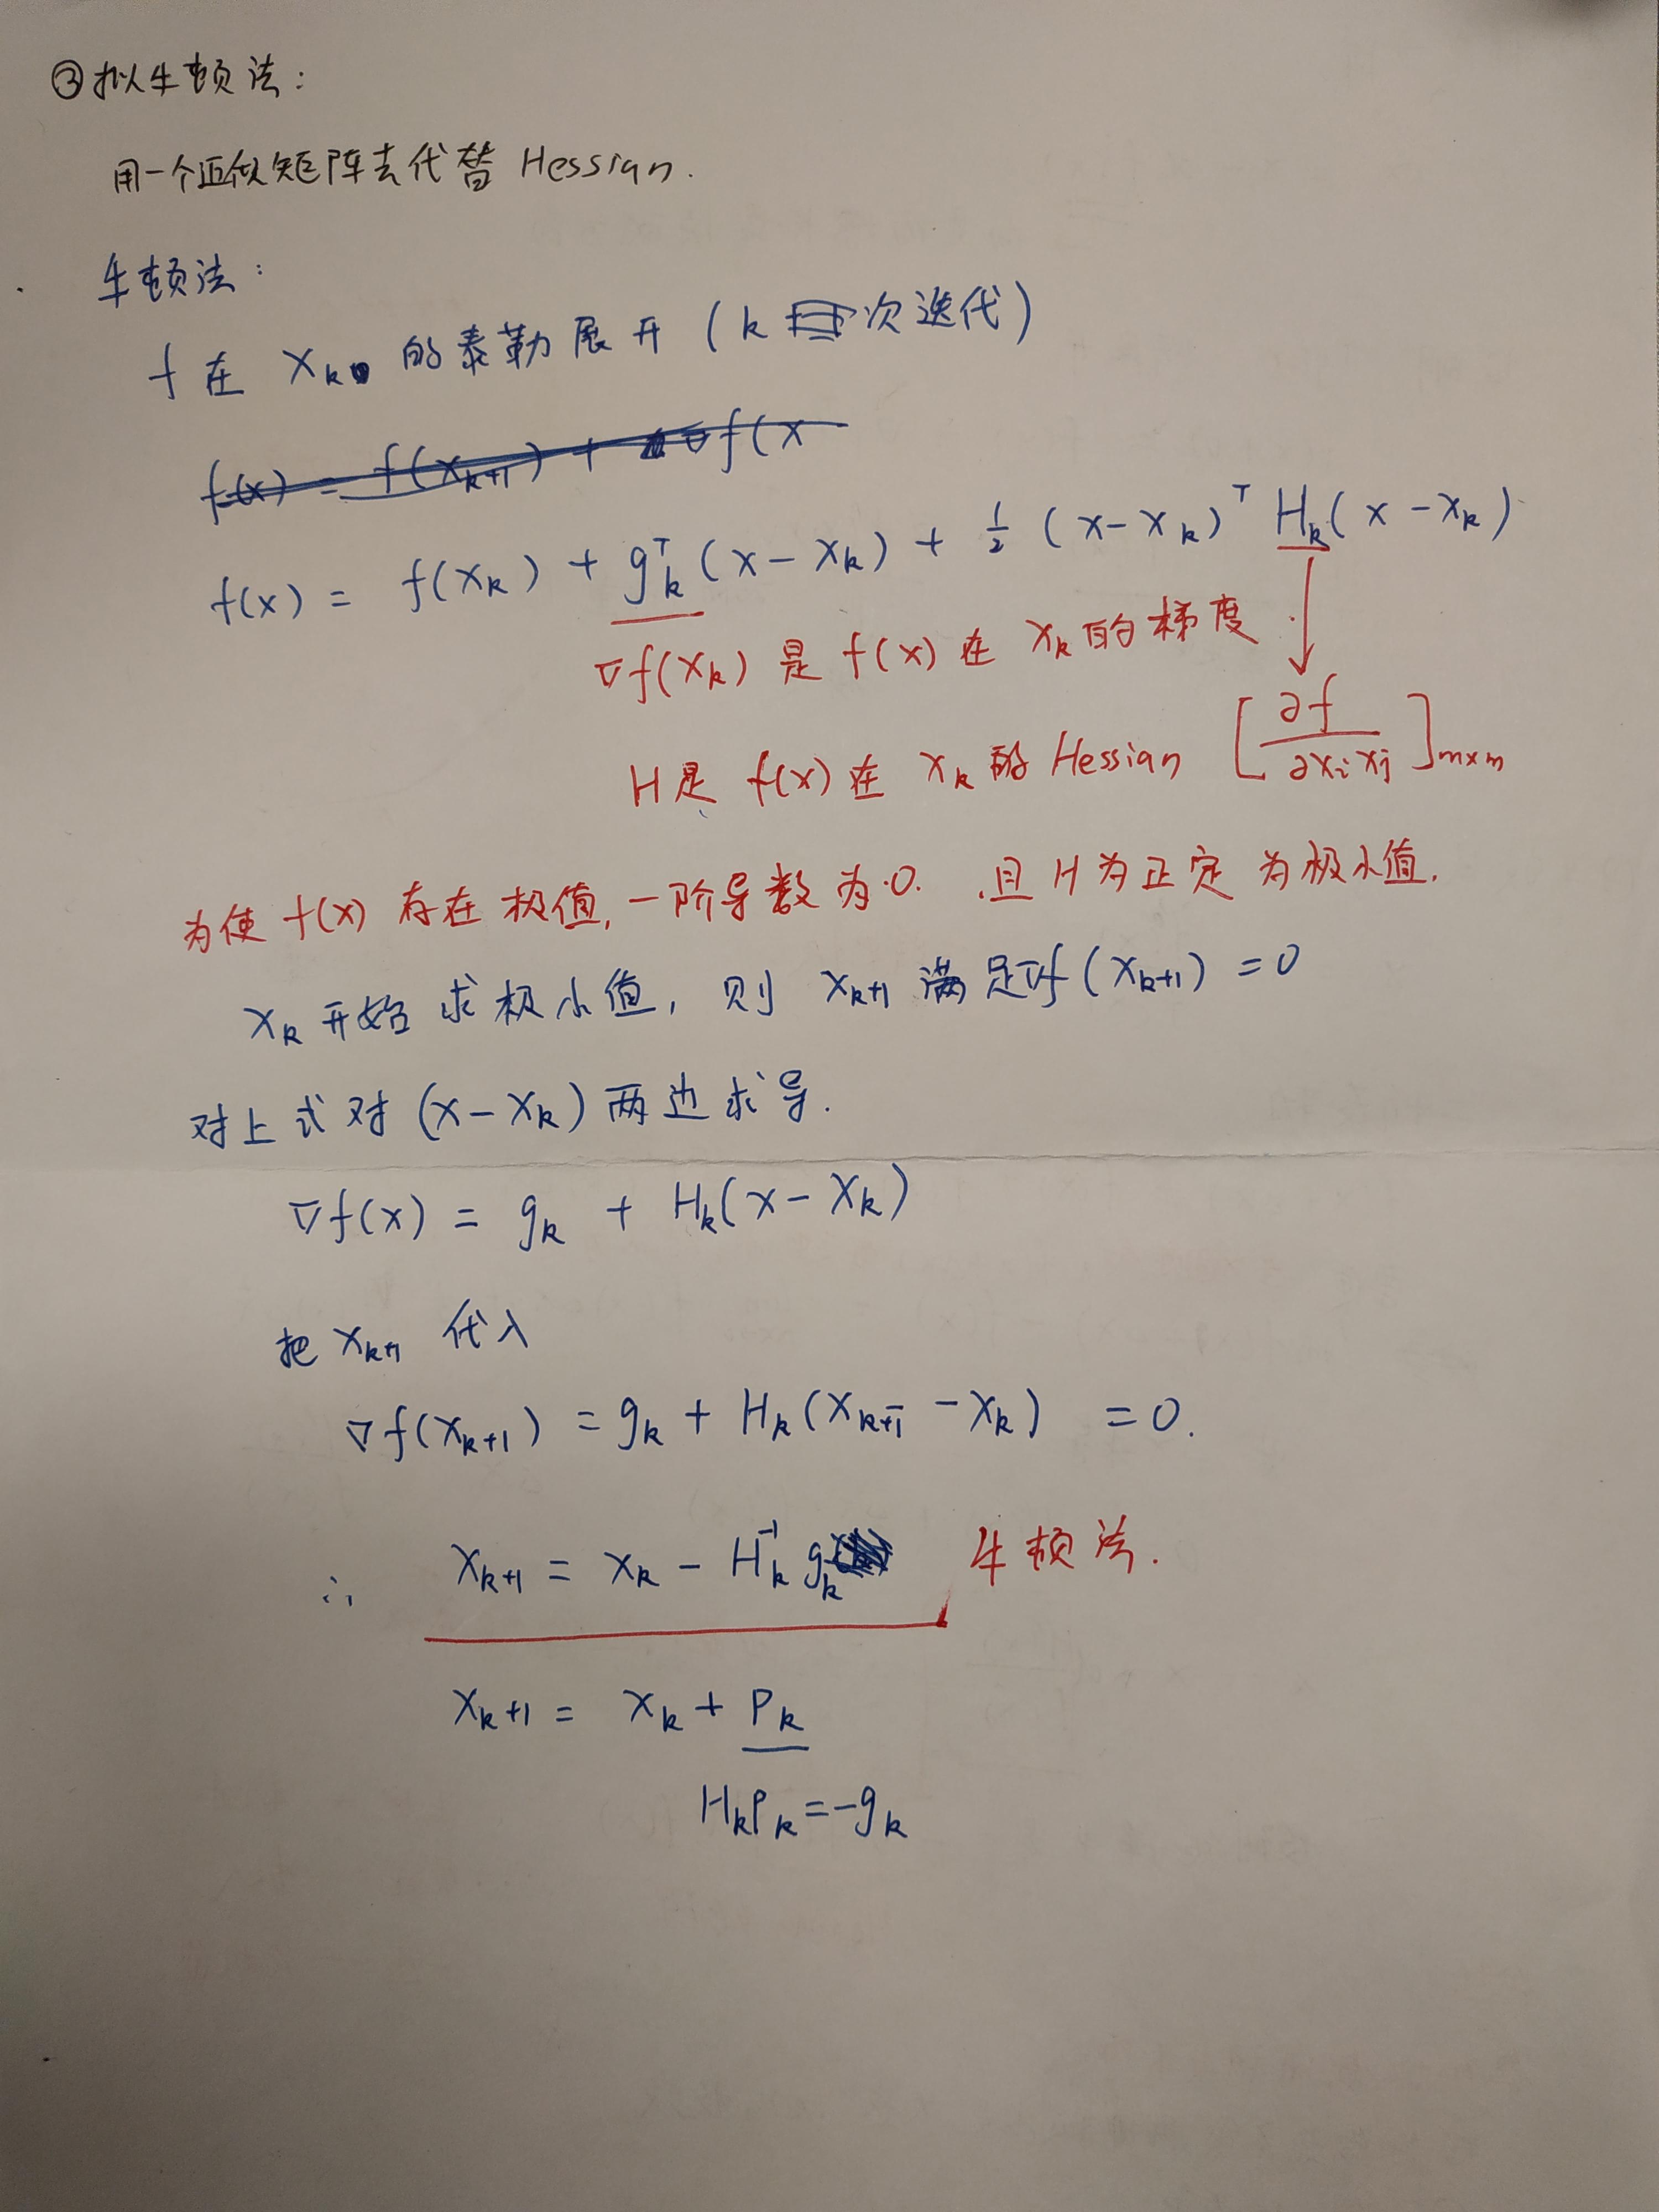 ③拟牛顿法:
用一个近似矩阵去代替 Hessian.
牛顿法:
f 在 xₖ 的泰勒展开 (k 次迭代)
f(x) = f(xₖ₊₁) + ∇f(x
f(x) = f(xₖ) + gₖᵀ(x-xₖ) + ½ (x-xₖ)ᵀ Hₖ(x-xₖ)
∇f(xₖ) 是 f(x) 在 xₖ 的梯度.
H是 f(x) 在 xₖ 的 Hessian [∂f / ∂xᵢxⱼ]m×n
为使 f(x) 存在极值,一阶导数为0. 且H为正定为极小值.
xₖ 开始求极小值, 则 xₖ₊₁ 满足∇f(xₖ₊₁) = 0
对上式对 (x-xₖ) 两边求导.
∇f(x) = gₖ + Hₖ(x-xₖ)
把 xₖ₊₁ 代入
∇f(xₖ₊₁) = gₖ + Hₖ(xₖ₊₁ - xₖ) = 0.
∴ xₖ₊₁ = xₖ - Hₖ⁻¹ gₖ 牛顿法.
xₖ₊₁ = xₖ + Pₖ
HₖPₖ = -gₖ